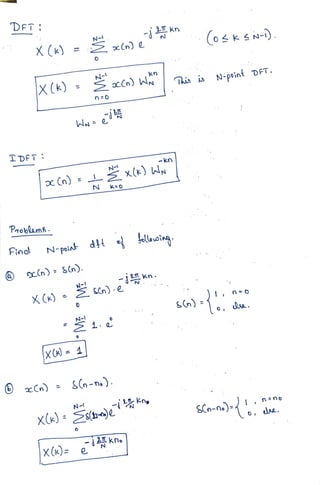 DFT :
X(k) = Σ_{0}^{N-1} x(n) e^{-j 2π/N kn} (0 ≤ K ≤ N-1).
X(k) = Σ_{n=0}^{N-1} x(n) W_N^{kn} This is N-point DFT.
W_N = e^{-j 2π/N}
IDFT :
x(n) = 1/N Σ_{k=0}^{N-1} X(k) W_N^{-kn}
Problems.
Find N-point dft of following.
ⓐ x(n) = δ(n).
X(k) = Σ_{0}^{N-1} δ(n) · e^{-j 2π/N kn}. δ(n) = { 1, n=0
= Σ_{0}^{N-1} 1 · e^{0} 0, else.
X(k) = 1
ⓑ x(n) = δ(n-n₀).
X(k) = Σ_{0}^{N-1} e^{-j 2π/N kn₀} δ(n-n₀) = { 1, n=n₀
0, else.
X(k) = e^{-j 2π/N kn₀}